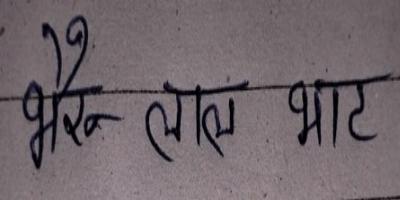 भैरू लाल भाट